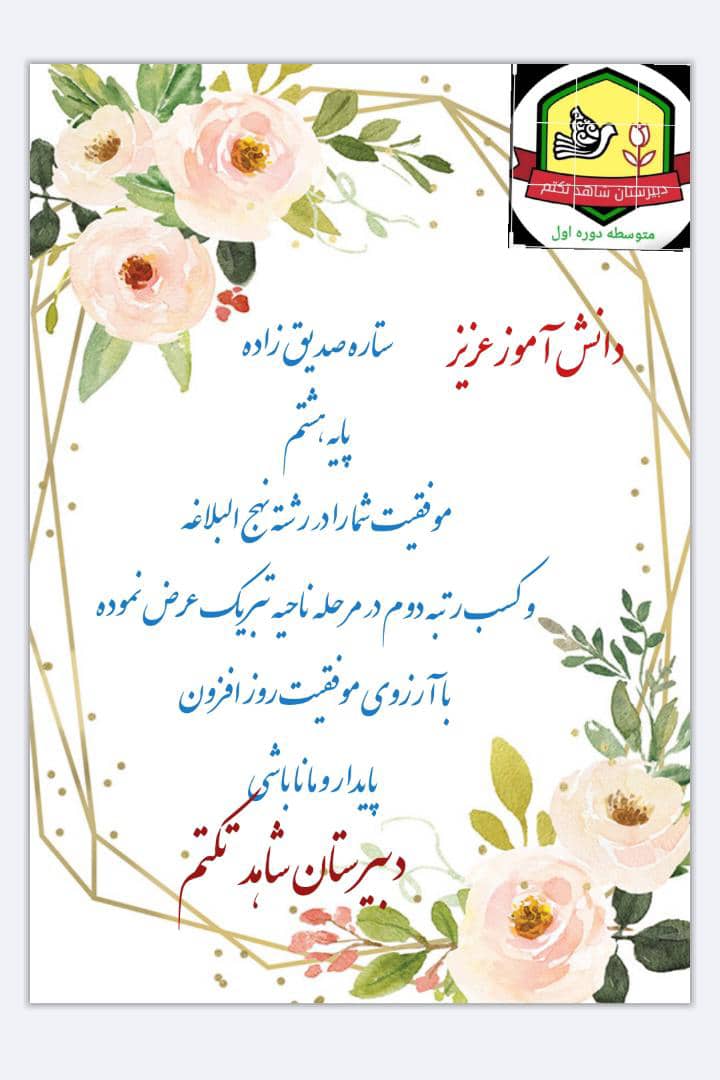 دبیرستان شاهد تکتم
متوسطه دوره اول
دانش آموز عزیز ستاره صدیق زاده
پایه هشتم
موفقیت شما را در رشته نهج البلاغه
و کسب رتبه دوم در مرحله ناحیه تبریک عرض نموده
با آرزوی موفقیت روز افزون
پایدار و مانا باشی
دبیرستان شاهد تکتم